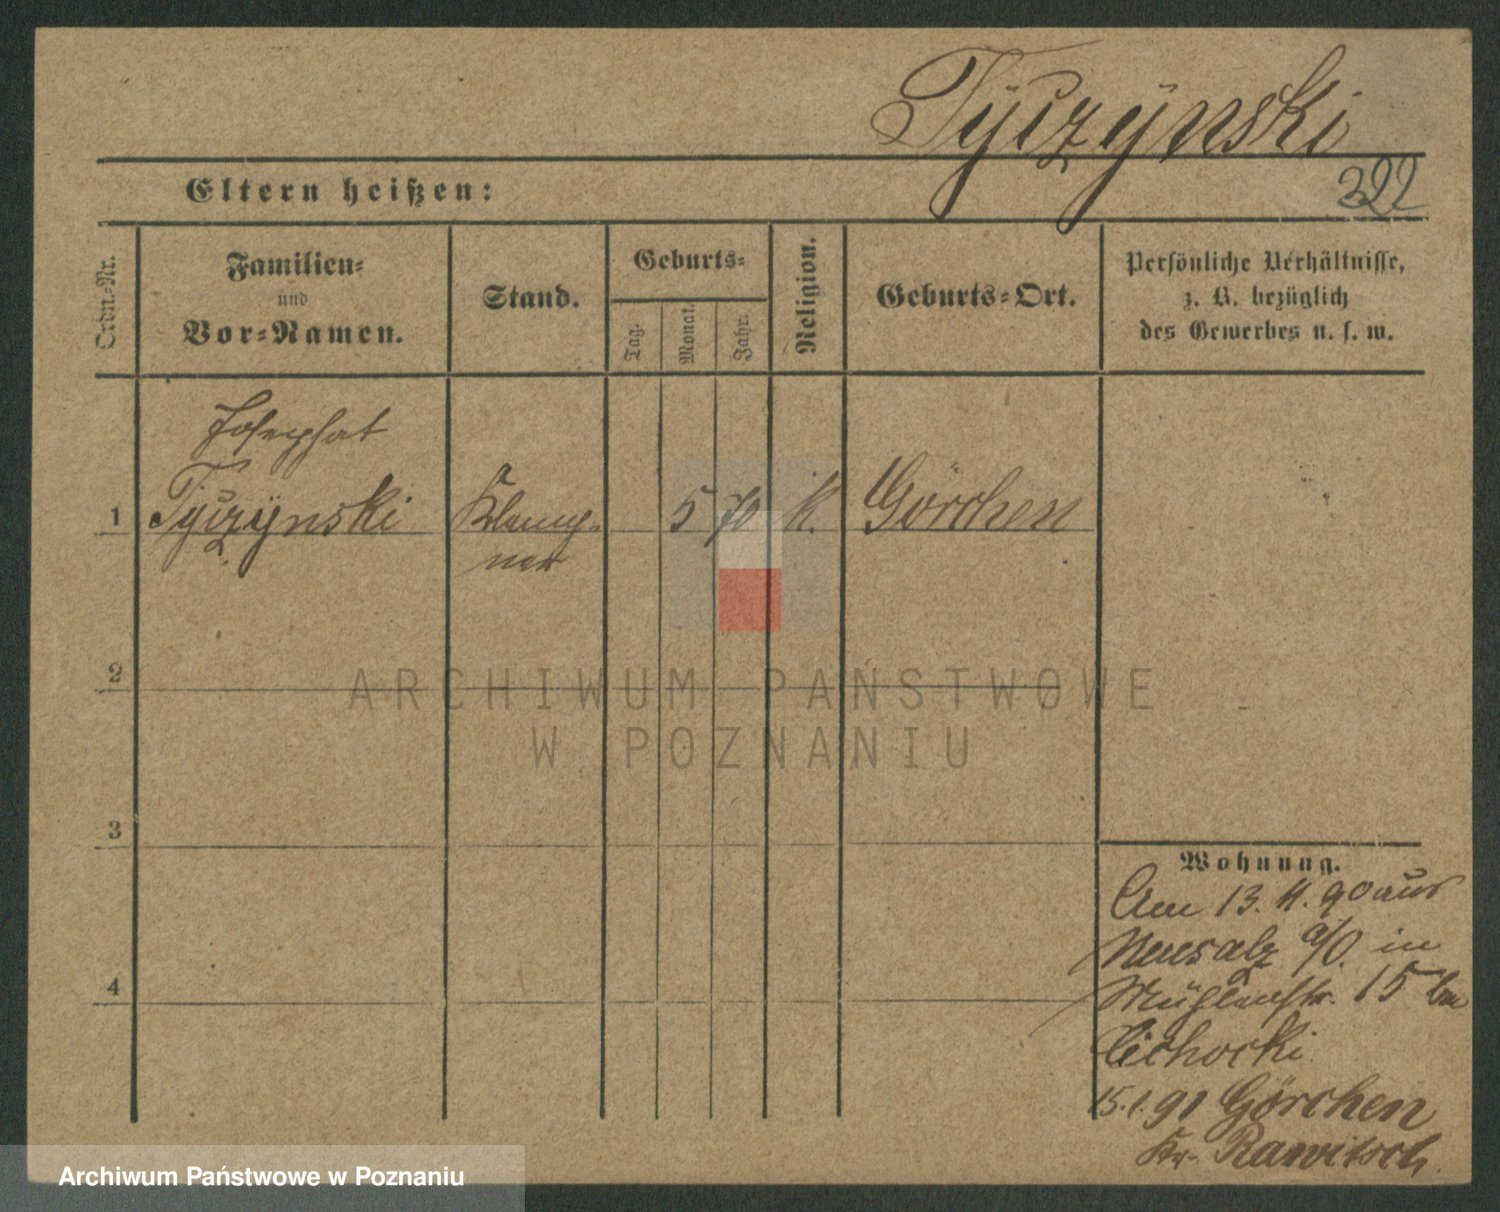 Tyczynski
322
Eltern heißen:
Ordn.-Nr.
Familien-
und
Vor-Namen.
Stand.
Geburts-
Tag.
Monat.
Jahr.
Religion.
Geburts-Ort.
Persönliche Verhältnisse,
z. B. bezüglich
des Gewerbes u. s. w.
Josephat
1 Tyczynski Klemp- 5 70 k. Görchen
ner
2
ARCHIWUM PAŃSTWOWE
W POZNANIU
3
4
Wohnung.
Am 13. 11. 90 aus
Neusalz a/O. in
Mühlenstr. 15 bei
Cichocki
15.1.91 Görchen
Kr. Rawitsch.
Archiwum Państwowe w Poznaniu